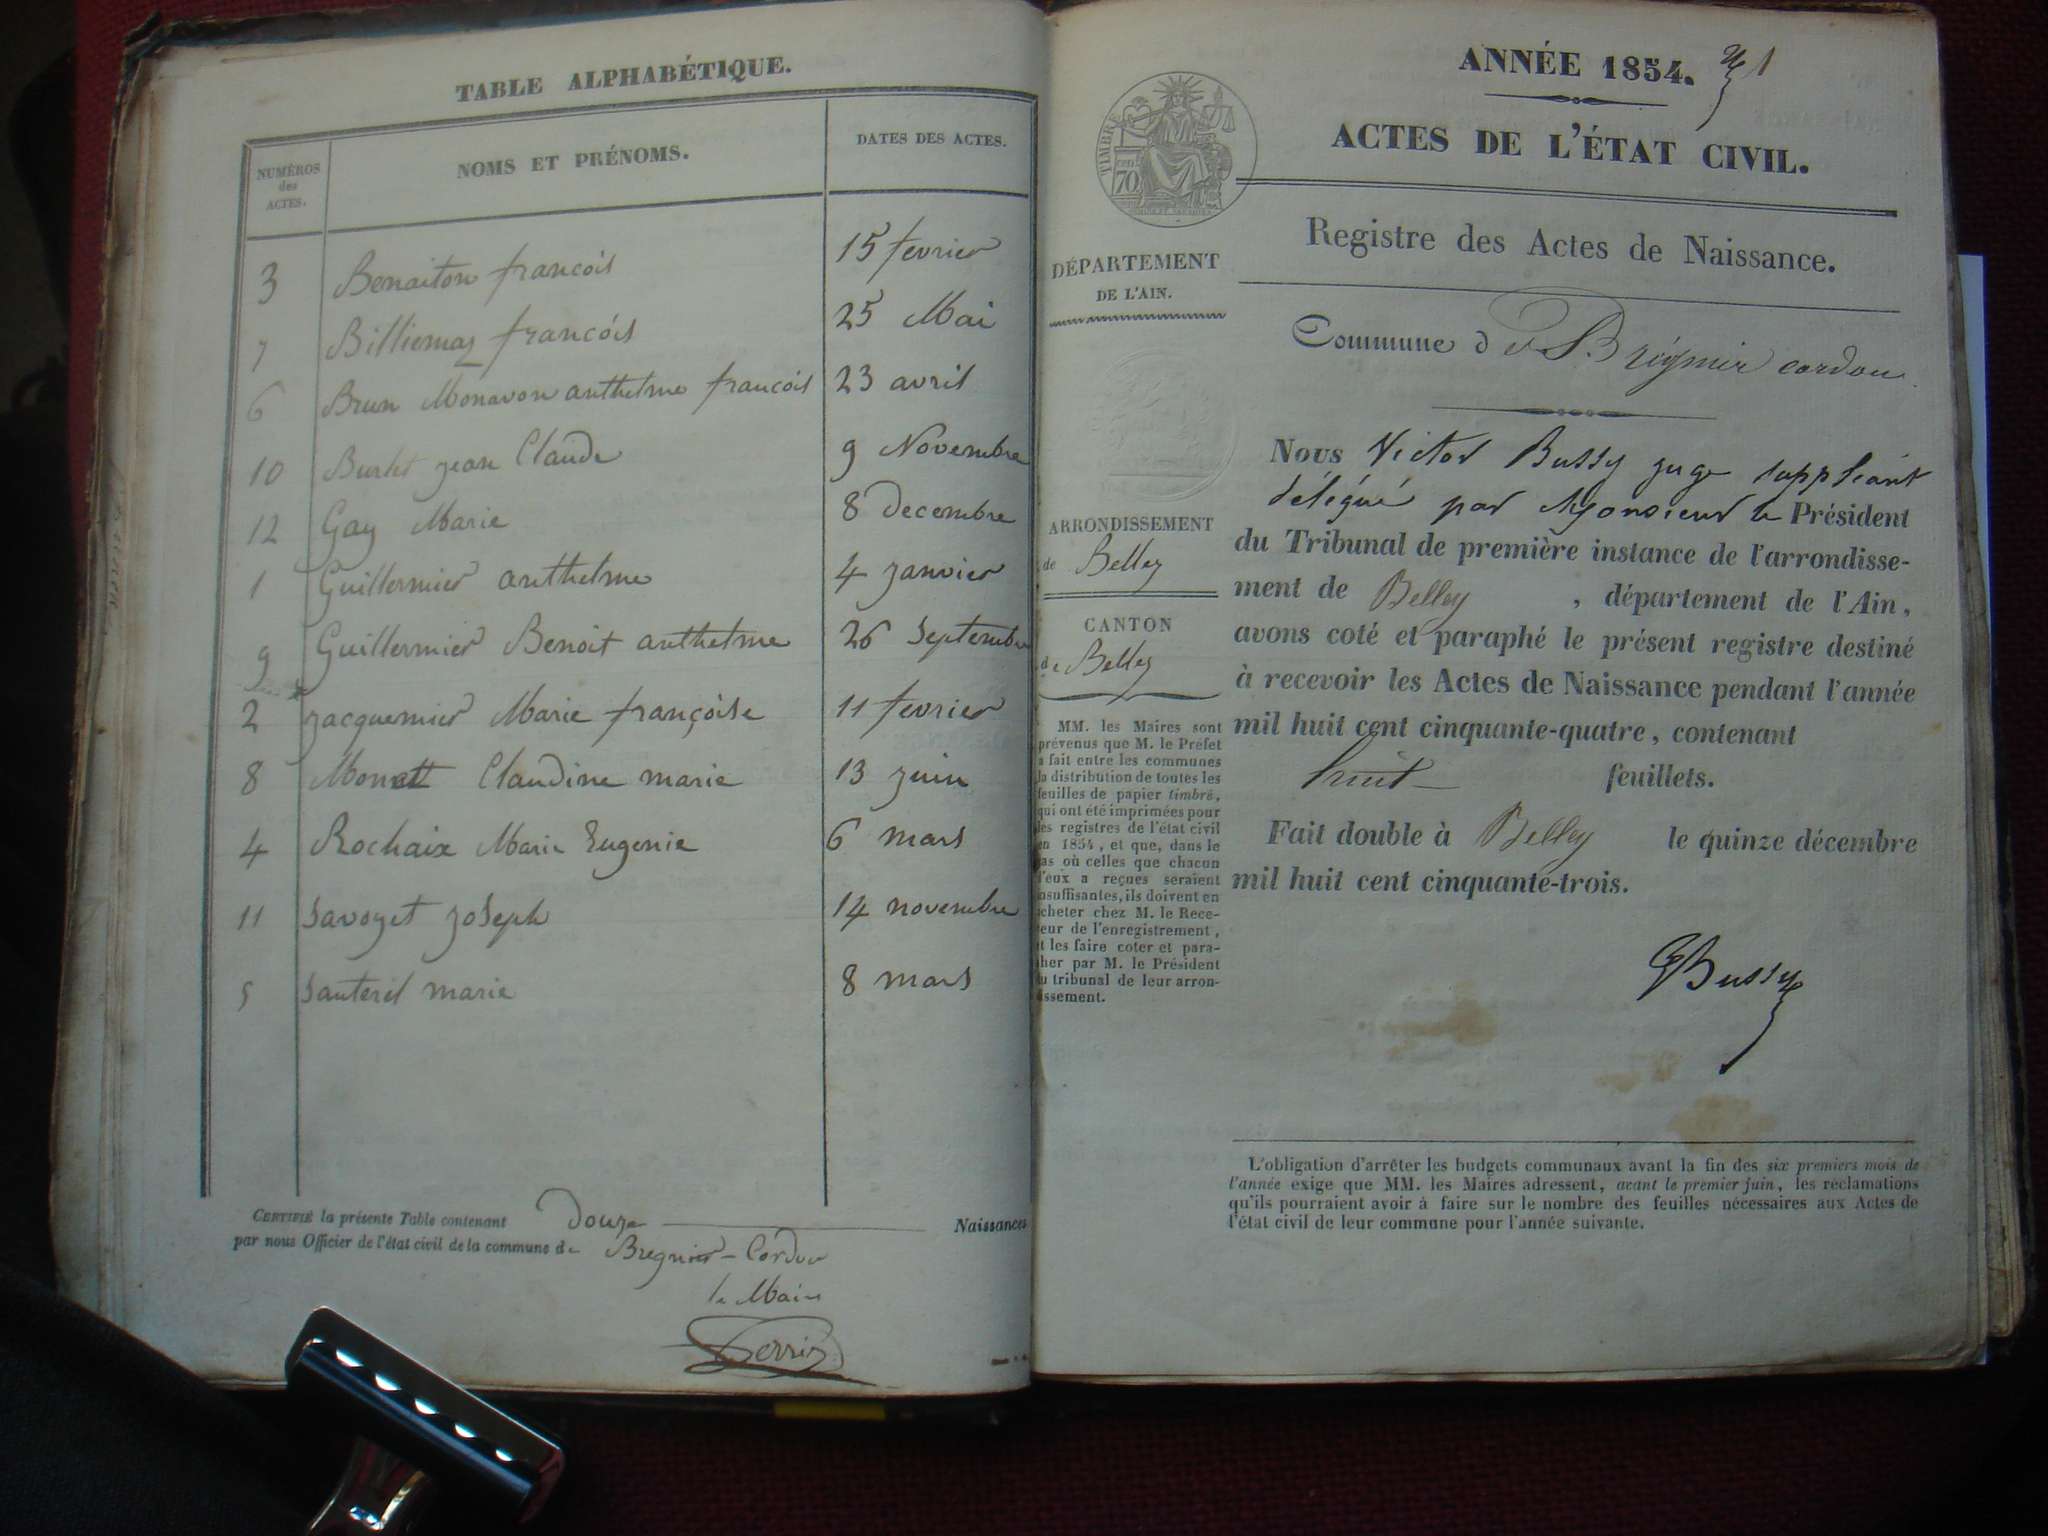 TABLE ALPHABÉTIQUE.
NUMÉROS des ACTES. NOMS ET PRÉNOMS. DATES DES ACTES.
3 Benaiton francois 15 fevrier
7 Billiemaz francois 25 Mai
6 Brun Monavon anthelme francois 23 avril
10 Burlet jean Claude 9 Novembre
12 Gay Marie 8 decembre
1 Guillermier anthelme 4 janvier
9 Guillermier Benoit anthelme 26 Septembre
2 jacquemier Marie françoise 11 fevrier
8 Monett Claudine marie 13 juin
4 Rochaix Marie Eugenie 6 mars
11 Savoyet joseph 14 novembre
5 Sauteret marie 8 mars
CERTIFIÉ la présente Table contenant Douze Naissances
par nous Officier de l'état civil de la commune de Bregnier-Cordon
le Maire
ANNÉE 1854. 1
TIMBRE
70
ACTES DE L'ÉTAT CIVIL.
Registre des Actes de Naissance.
DÉPARTEMENT
DE L'AIN.
Commune de Brégnier cordon
Nous Victor Bussy juge suppléant
délégué par Monsieur le Président
du Tribunal de première instance de l'arrondisse-
ment de Belley , département de l'Ain,
avons coté et paraphé le présent registre destiné
à recevoir les Actes de Naissance pendant l'année
mil huit cent cinquante-quatre, contenant
huit feuillets.
Fait double à Belley le quinze décembre
mil huit cent cinquante-trois.
Bussy
ARRONDISSEMENT
de Belley
CANTON
de Belley
MM. les Maires sont
prévenus que M. le Préfet
a fait entre les communes
la distribution de toutes les
feuilles de papier timbré,
qui ont été imprimées pour
les registres de l'état civil
en 1854, et que, dans le
cas où celles que chacun
d'eux a reçues seraient
insuffisantes, ils doivent en
acheter chez M. le Rece-
veur de l'enregistrement,
et les faire coter et para-
pher par M. le Président
du tribunal de leur arron-
dissement.
L'obligation d'arrêter les budgets communaux avant la fin des six premiers mois de
l'année exige que MM. les Maires adressent, avant le premier juin, les réclamations
qu'ils pourraient avoir à faire sur le nombre des feuilles nécessaires aux Actes de
l'état civil de leur commune pour l'année suivante.